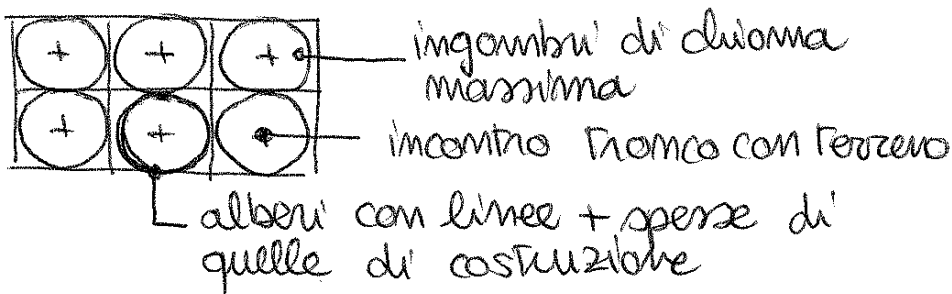 ingombri di chioma
massima
incontro tronco con terreno
alberi con linee + spesse di
quelle di costruzione